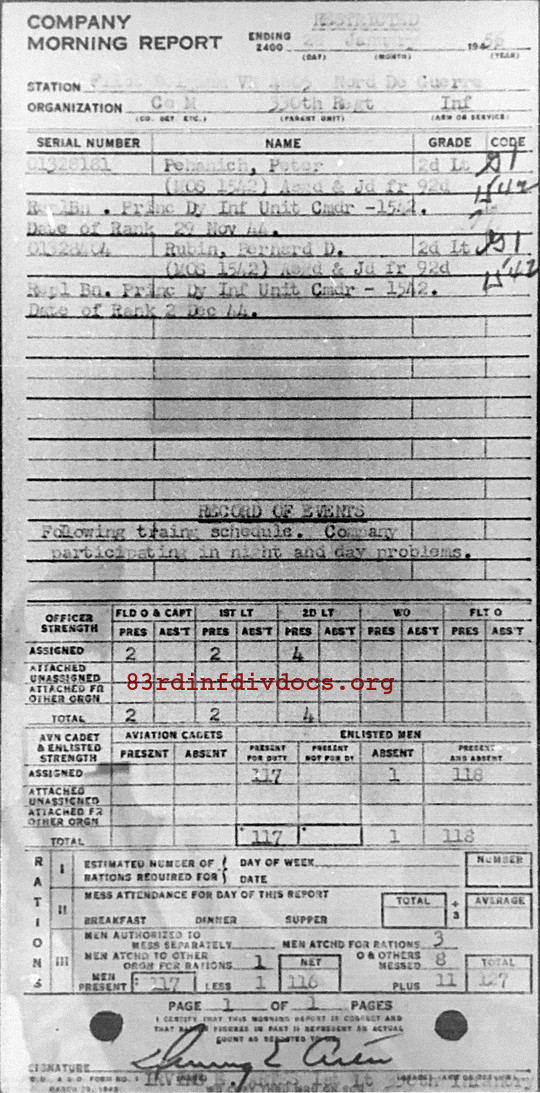 COMPANY
MORNING REPORT
ENDING
2400
RESTRICTED
January
194
(DAY) (MONTH) (YEAR)
STATION
Nord De Guerre
ORGANIZATION Co M 330th Regt Inf
(CO. DET. ETC.) (PARENT UNIT) (ARM OR SERVICE)
SERIAL NUMBER NAME GRADE CODE
01328181 Pehanich, Peter 2d Lt
(MOS 1542) Asmd & Jd fr 92d 1542
ReplBn . Princ Dy Inf Unit Cmdr -1542.
Date of Rank 29 Nov 44.
01328404 Rubin, Bernard D. 2d Lt
(MOS 1542) Asmd & Jd fr 92d 1542
Repl Bn. Princ Dy Inf Unit Cmdr - 1542.
Date of Rank 2 Dec 44.
RECORD OF EVENTS
Following traing schedule. Company
participating in night and day problems.
OFFICER STRENGTH FLD O & CAPT 1ST LT 2D LT WO FLT O
PRES ABS'T PRES ABS'T PRES ABS'T PRES ABS'T PRES ABS'T
ASSIGNED 2 2 4
ATTACHED UNASSIGNED
ATTACHED FR OTHER ORGN
83rdinfdivdocs.org
TOTAL 2 2 4
AVN CADET & ENLISTED STRENGTH AVIATION CADETS ENLISTED MEN
PRESENT ABSENT PRESENT FOR DUTY PRESENT NOT FOR DY ABSENT PRESENT AND ABSENT
ASSIGNED 117 1 118
ATTACHED UNASSIGNED
ATTACHED FR OTHER ORGN
TOTAL 117 1 118
RATIONS
I ESTIMATED NUMBER OF RATIONS REQUIRED FOR { DAY OF WEEK NUMBER
DATE
II MESS ATTENDANCE FOR DAY OF THIS REPORT TOTAL ÷ 3 AVERAGE
BREAKFAST DINNER SUPPER
III MEN AUTHORIZED TO MESS SEPARATELY MEN ATCHD FOR RATIONS 3
MEN ATCHD TO OTHER ORGN FOR RATIONS 1 NET O & OTHERS MESSED 8 TOTAL
MEN PRESENT 117 LESS 1 116 PLUS 11 127
PAGE 1 OF 1 PAGES
I CERTIFY THAT THIS MORNING REPORT IS CORRECT AND
THAT RATION FIGURES IN PART III REPRESENT AS ACTUAL
COUNT AS REPORTED TO
SIGNATURE
W.D., A.G.O. FORM NO. 1
MARCH 29, 1943
1st Lt 330th Infantry